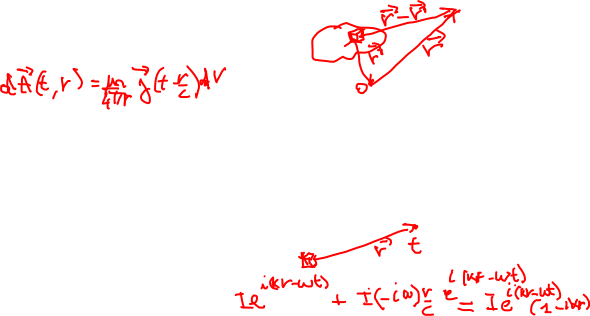 r⃗ - r⃗'
r⃗'
r⃗
O
dA⃗(t, r) = μ₀/4πr j⃗(t - r/c) dV
r⃗
t
I e^{i(kr-ωt)} + I(-iω) r/c e^{i(kr-ωt)} = I e^{i(kr-ωt)} (1 - ikr)